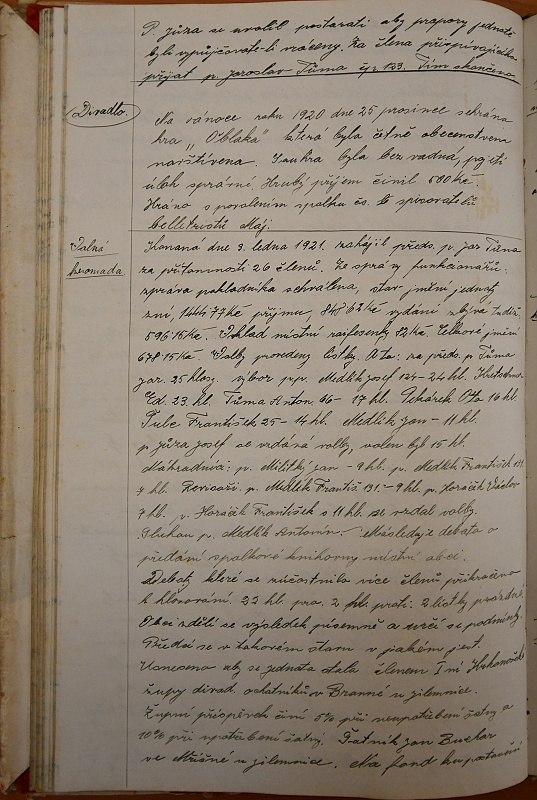 P. Jůza se uvolil postarati aby prapory jednotě
byli vypůjčovateli vráceny. Za člena přispívajícího
přijat p. Jaroslav Tůma čp. 123. Tím skončeno
Divadlo.
Na vánoce roku 1920 dne 25 prosince sehrána
hra „Oblaka" která byla četně obecenstvem
navštívena. Souhra byla bez vadná, pojetí
úloh správné. Hrubý příjem činil 500 Kč.
Hráno s povolením spolku čs. spisovatelů
belletristů Máj.
Valná
hromada
Konaná dne 9. ledna 1921. zahájil předs. p. Jar Tůma
za přítomnosti 26 členů. Ze zprávy funkcionářů:
zpráva pokladníka schválena, stav jmění jednoty
zní, 1444·77 Kč příjmu, 847·62 Kč vydání zbývá tudíž
596·15 Kč. Vklad místní raifesenky 82 Kč. Celkové jmění
678·15 Kč. Volby provedeny lístky. A to: za předs. p. Tůma
Jar. 25 hlasy. výbor pp. Medlík Josef 124 - 24 hl.
Ed. 23. hl. Tůma Anton. 66 - 17 hl. Ota 16 hl.
František 25 - 14 hl. Medlík Jan - 11 hl.
p. Jůza Josef se vzdává volby, volen byl 15 hl.
Náhradníci: p. Militký Jan - 9 hl. p. Medlík František 131.
7 hl. Revisoři. p. Medlík Františ. 131. - 9 hl. p. Horáček Václav
7 hl. p. Horáček František s 11 hl. se vzdal volby.
p. Medlík Antonín. Následuje debata o
předání spolkové knihovny místní obci.
Debaty které se zúčastnilo více členů přikročeno
k hlasování. 22 hl. pro. 2 hl. proti. 2 lístky prázdné.
Obci sdělí se výsledek písemně a určí se podmínky.
Předá se v takovém stavu v jakém jest.
Usneseno aby se jednota stala členem I ní Krkonošské
župy divad. ochotníků v Branné u Jilemnice.
Župní příspěvek činí 5% při neupotřebení šatny a
10% při upotřebení šatny. Šatník Jan Buchar
ve Mříčné u Jilemnice. Na fond ku postavení